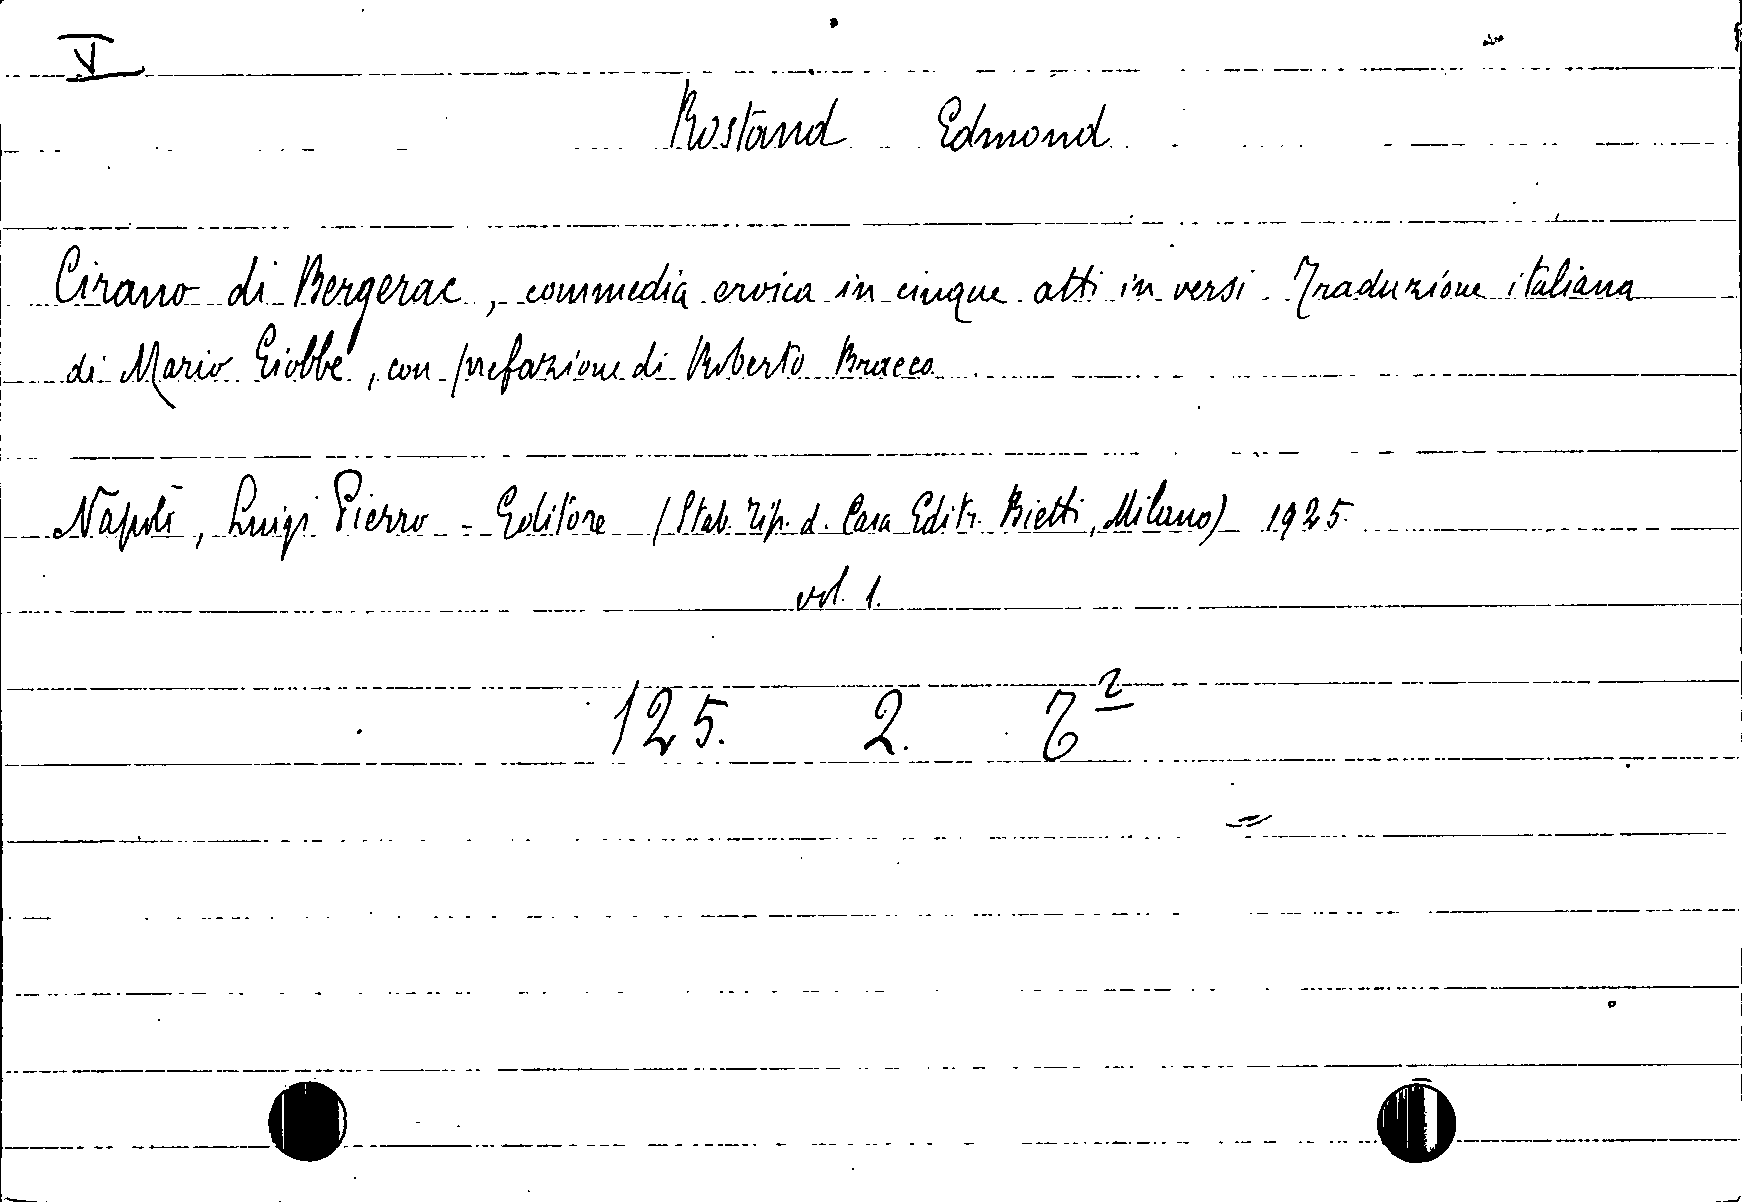 V
Rostand Edmond
Cirano di Bergerac, commedia eroica in cinque atti in versi. Traduzione italiana
di Mario Giobbe, con prefazione di Roberto Bracco
Napoli, Luigi Pierro - Editore (Stab. Tip. d. Casa Editr. Bietti, Milano) 1925.
vol. 1.
125. 2.